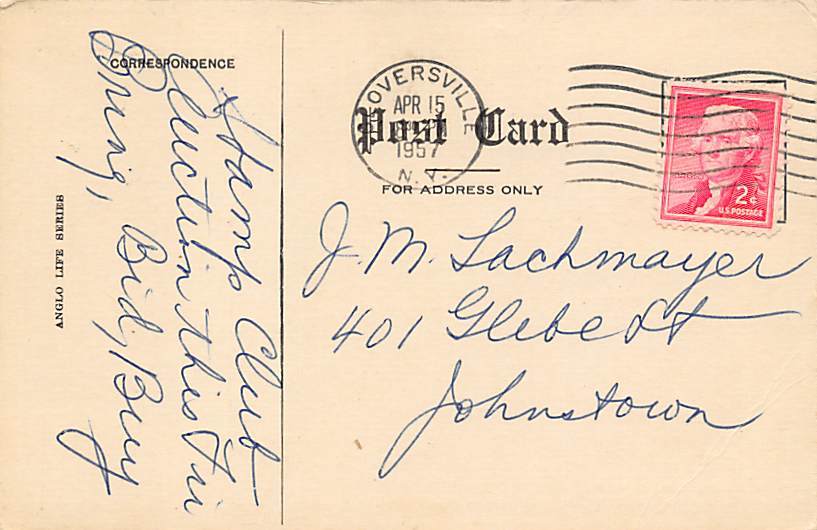 CORRESPONDENCE
Stamp Club
Auction this Fri
Bring, Bid, Buy
ANGLO LIFE SERIES
OVERSVILLE
APR 15
1957
N.Y.
Post Card
FOR ADDRESS ONLY
2¢
U.S. POSTAGE
J. M. Lachmayer
401 Glebe St
Johnstown